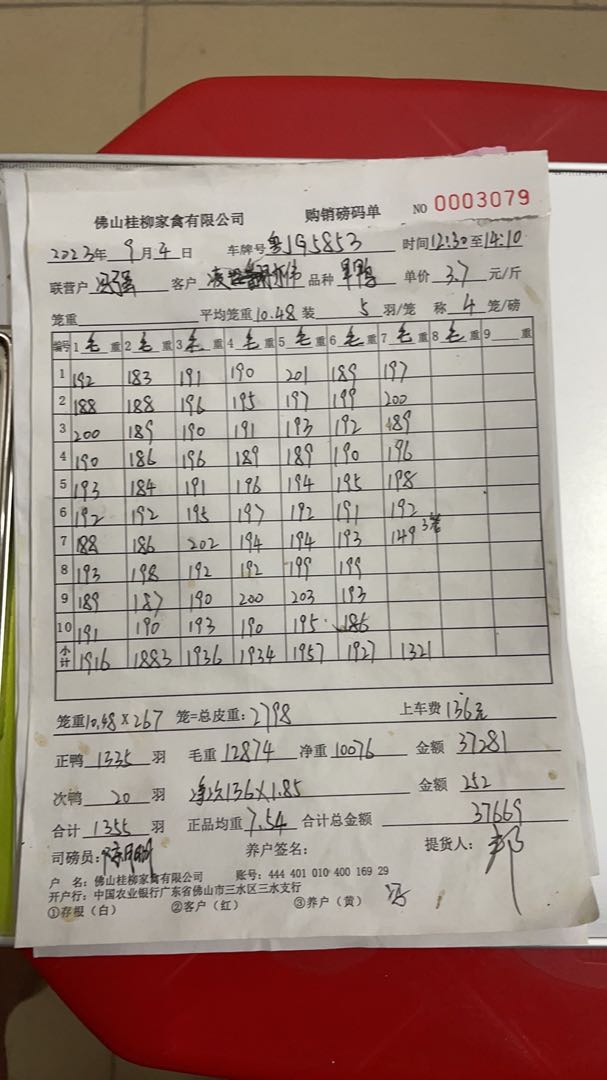 佛山桂柳家禽有限公司 购销磅码单 NO 0003079
2023年 9月 4日 车牌号粤JG5853 时间12:30至14:10
联营户 冯强 客户 凌 品种 单鸭 单价 3.7 元/斤
笼重 平均笼重10.48 装 5 羽/笼 称 4 笼/磅
编号 1 毛 重 2 毛 重 3 毛 重 4 毛 重 5 毛 重 6 毛 重 7 毛 重 8 毛 重 9 重
1 192 183 191 190 201 189 197
2 188 188 196 195 197 199 200
3 200 189 190 191 193 192 189
4 190 186 196 189 189 190 196
5 193 184 191 196 194 195 198
6 192 192 195 197 192 191 192
7 188 186 202 194 194 193 149 3笼
8 193 198 192 192 199 199
9 189 187 190 200 203 193
10 191 190 193 190 195 186
小计 1916 1883 1936 1934 1957 1927 1321
笼重10.48×267 笼=总皮重:2798 上车费 136元
正鸭 1335 羽 毛重 12874 净重 10076 金额 37281
次鸭 20 羽 净次136×1.85 金额 252
合计 1355 羽 正品均重 7.54 合计总金额 37669
司磅员: 养户签名: 提货人: 邦
户 名: 佛山桂柳家禽有限公司 账号: 444 401 010 400 169 29
开户行: 中国农业银行广东省佛山市三水区三水支行
①存根（白） ②客户（红） ③养户（黄） 冯